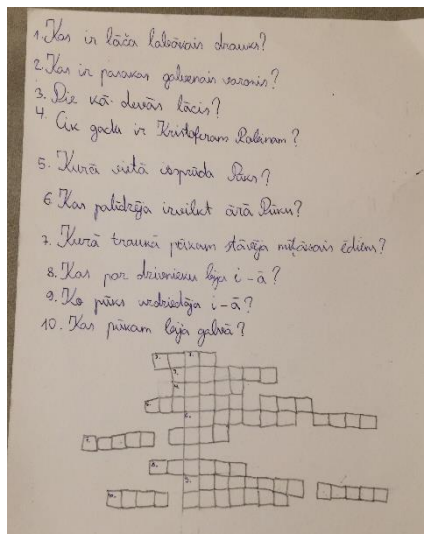 1. Kas ir lāča labākais draugs?
2. Kas ir pasakas galvenais varonis?
3. Pie kā devās lācis?
4. Cik gadu ir Kristoferam Robinam?
5. Kurā vietā iesprūda Pūks?
6. Kas palīdzēja izvilkt ārā Pūku?
7. Kurā traukā pūkam stāvēja mīļākais ēdiens?
8. Kas par dzīvnieku bija i-ā?
9. Ko pūks uzdāvāja i-ā?
10. Kas pūkam bija galvā?
1.
2.
3.
4.
5.
6.
7.
8.
9.
10.